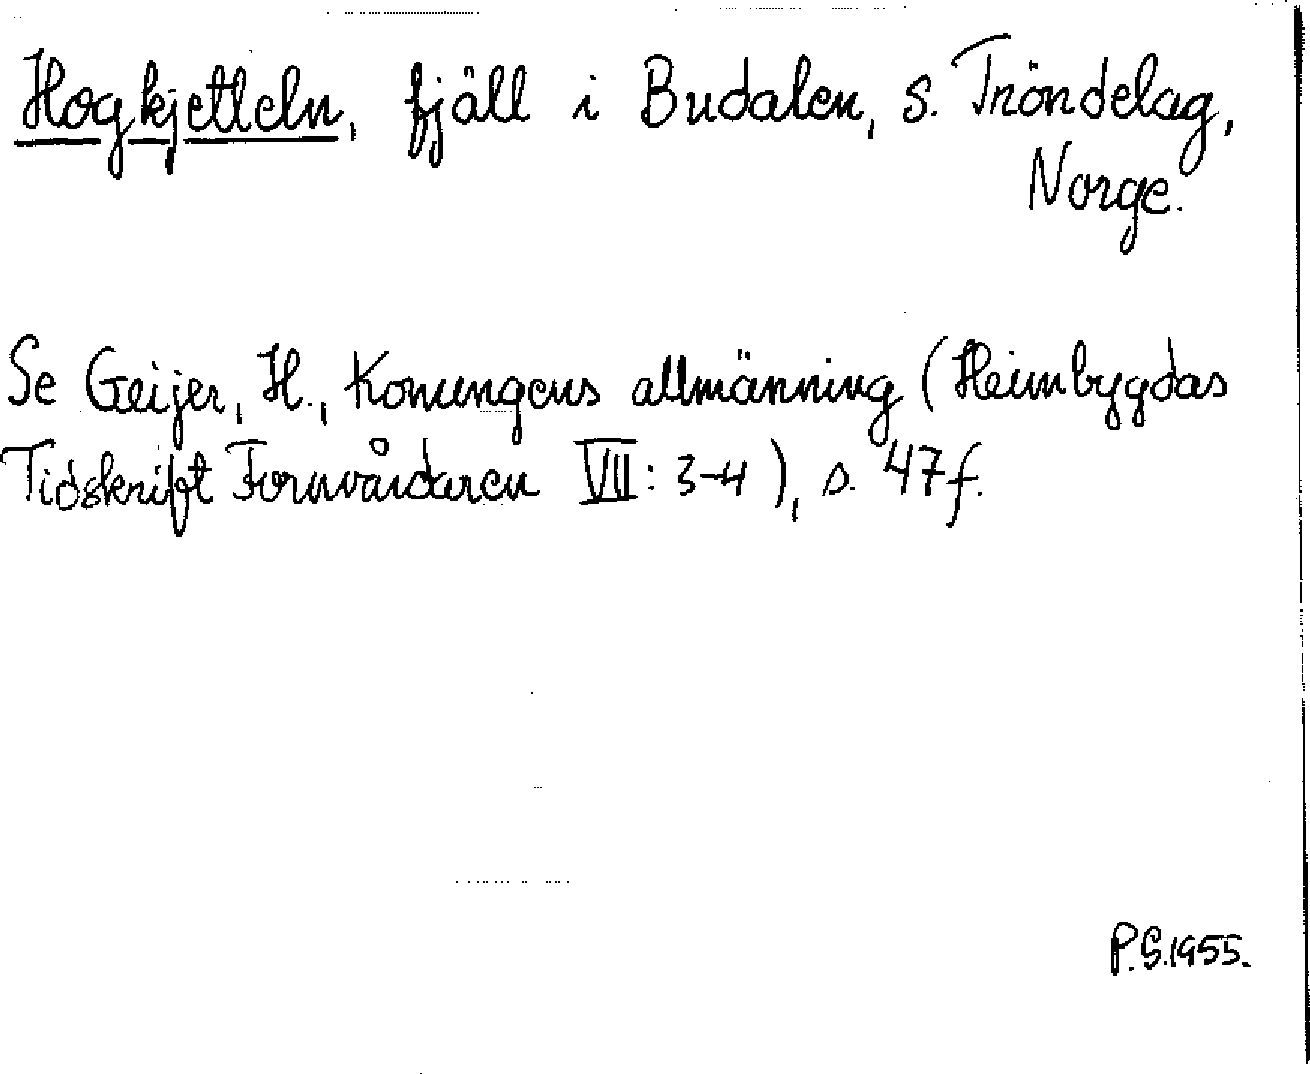 Hogkjetteln, fjäll i Budalen, s. Tröndelag,
Norge.
Se Geijer, H., Konungens allmänning (Heimbygdas
Tidskrift Fornvårdaren VII: 3-4), s. 47f.
P.S.1955.